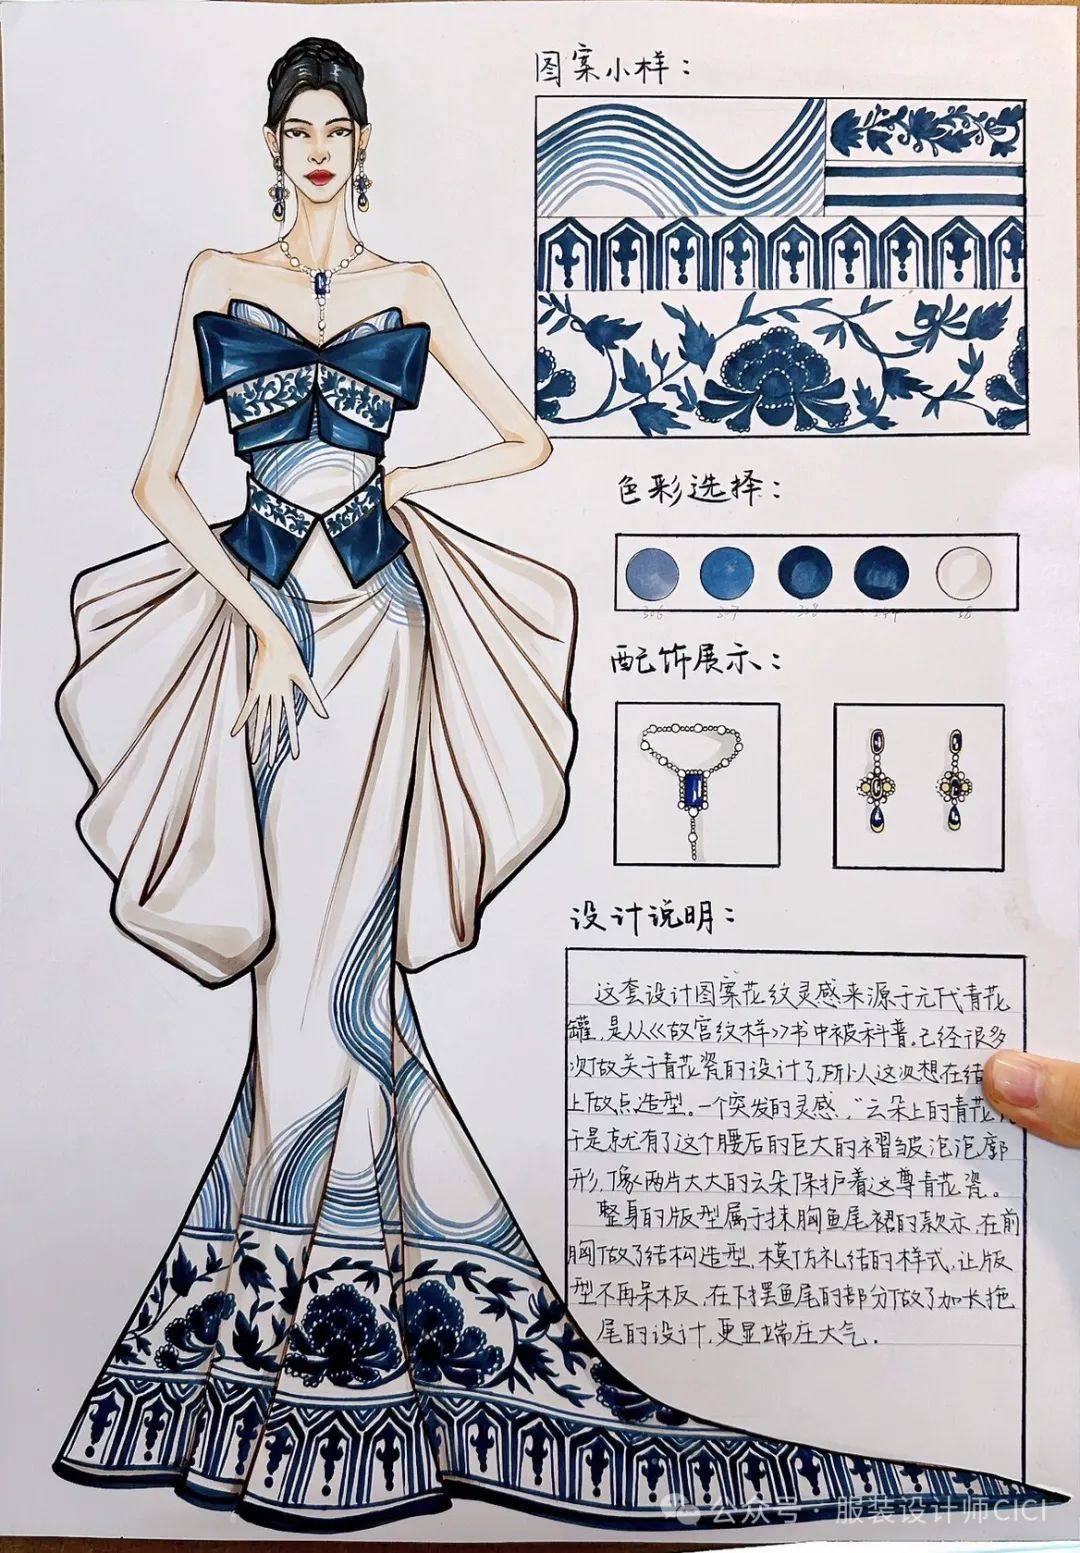 图案小样：
色彩选择：
配饰展示：
设计说明：
这套设计图案花纹灵感来源于元代青花
罐，是从《故宫纹样》书中被科普。已经很多
次做关于青花瓷的设计了，所以这次想在结
上做点造型。一个突发的灵感，“云朵上的青花
于是就有了这个腰后的巨大的褶皱泡泡廓
形，像两片大大的云朵保护着这尊青花瓷。
整身的版型属于抹胸鱼尾裙的款示，在前
胸做了结构造型，模仿礼结的样式，让版
型不再呆板，在下摆鱼尾的部分做了加长拖
尾的设计，更显端庄大气。
公众号·服装设计师CICI